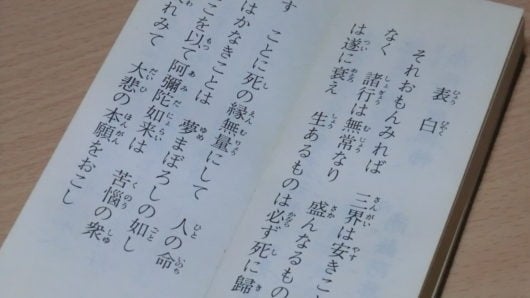 表白
それおもんみれば　三界は安きこ
なく　諸行は無常なり　盛んなるもの
は遂に衰え　生あるものは必ず死に歸
す　ことに死の縁無量にして　人の命
はかなきことは　夢まぼろしの如し
こを以て阿彌陀如来は　苦悩の衆
れみて　大悲の本願をおこし